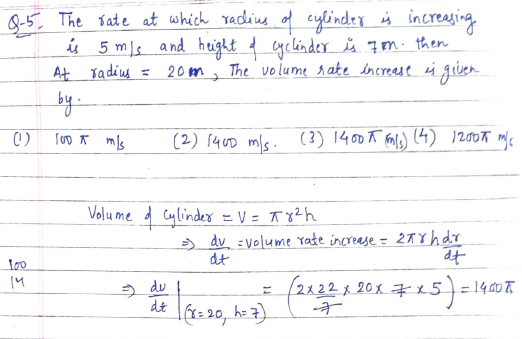 Q-5. The rate at which radius of cylinder is increasing
is 5 m/s and height of cyclinder is 7m. then
At radius = 20m, The volume rate increase is given
by.
(1) 100 π m/s (2) 1400 m/s. (3) 1400π (m/s) (4) 1200π m/s
Volume of Cylinder = V = πr²h
⇒ dv/dt = volume rate increase = 2πrh dr/dt
100
14
⇒ dv/dt |(r=20, h=7) = (2×22/7 × 20× 7 ×5) = 1400π